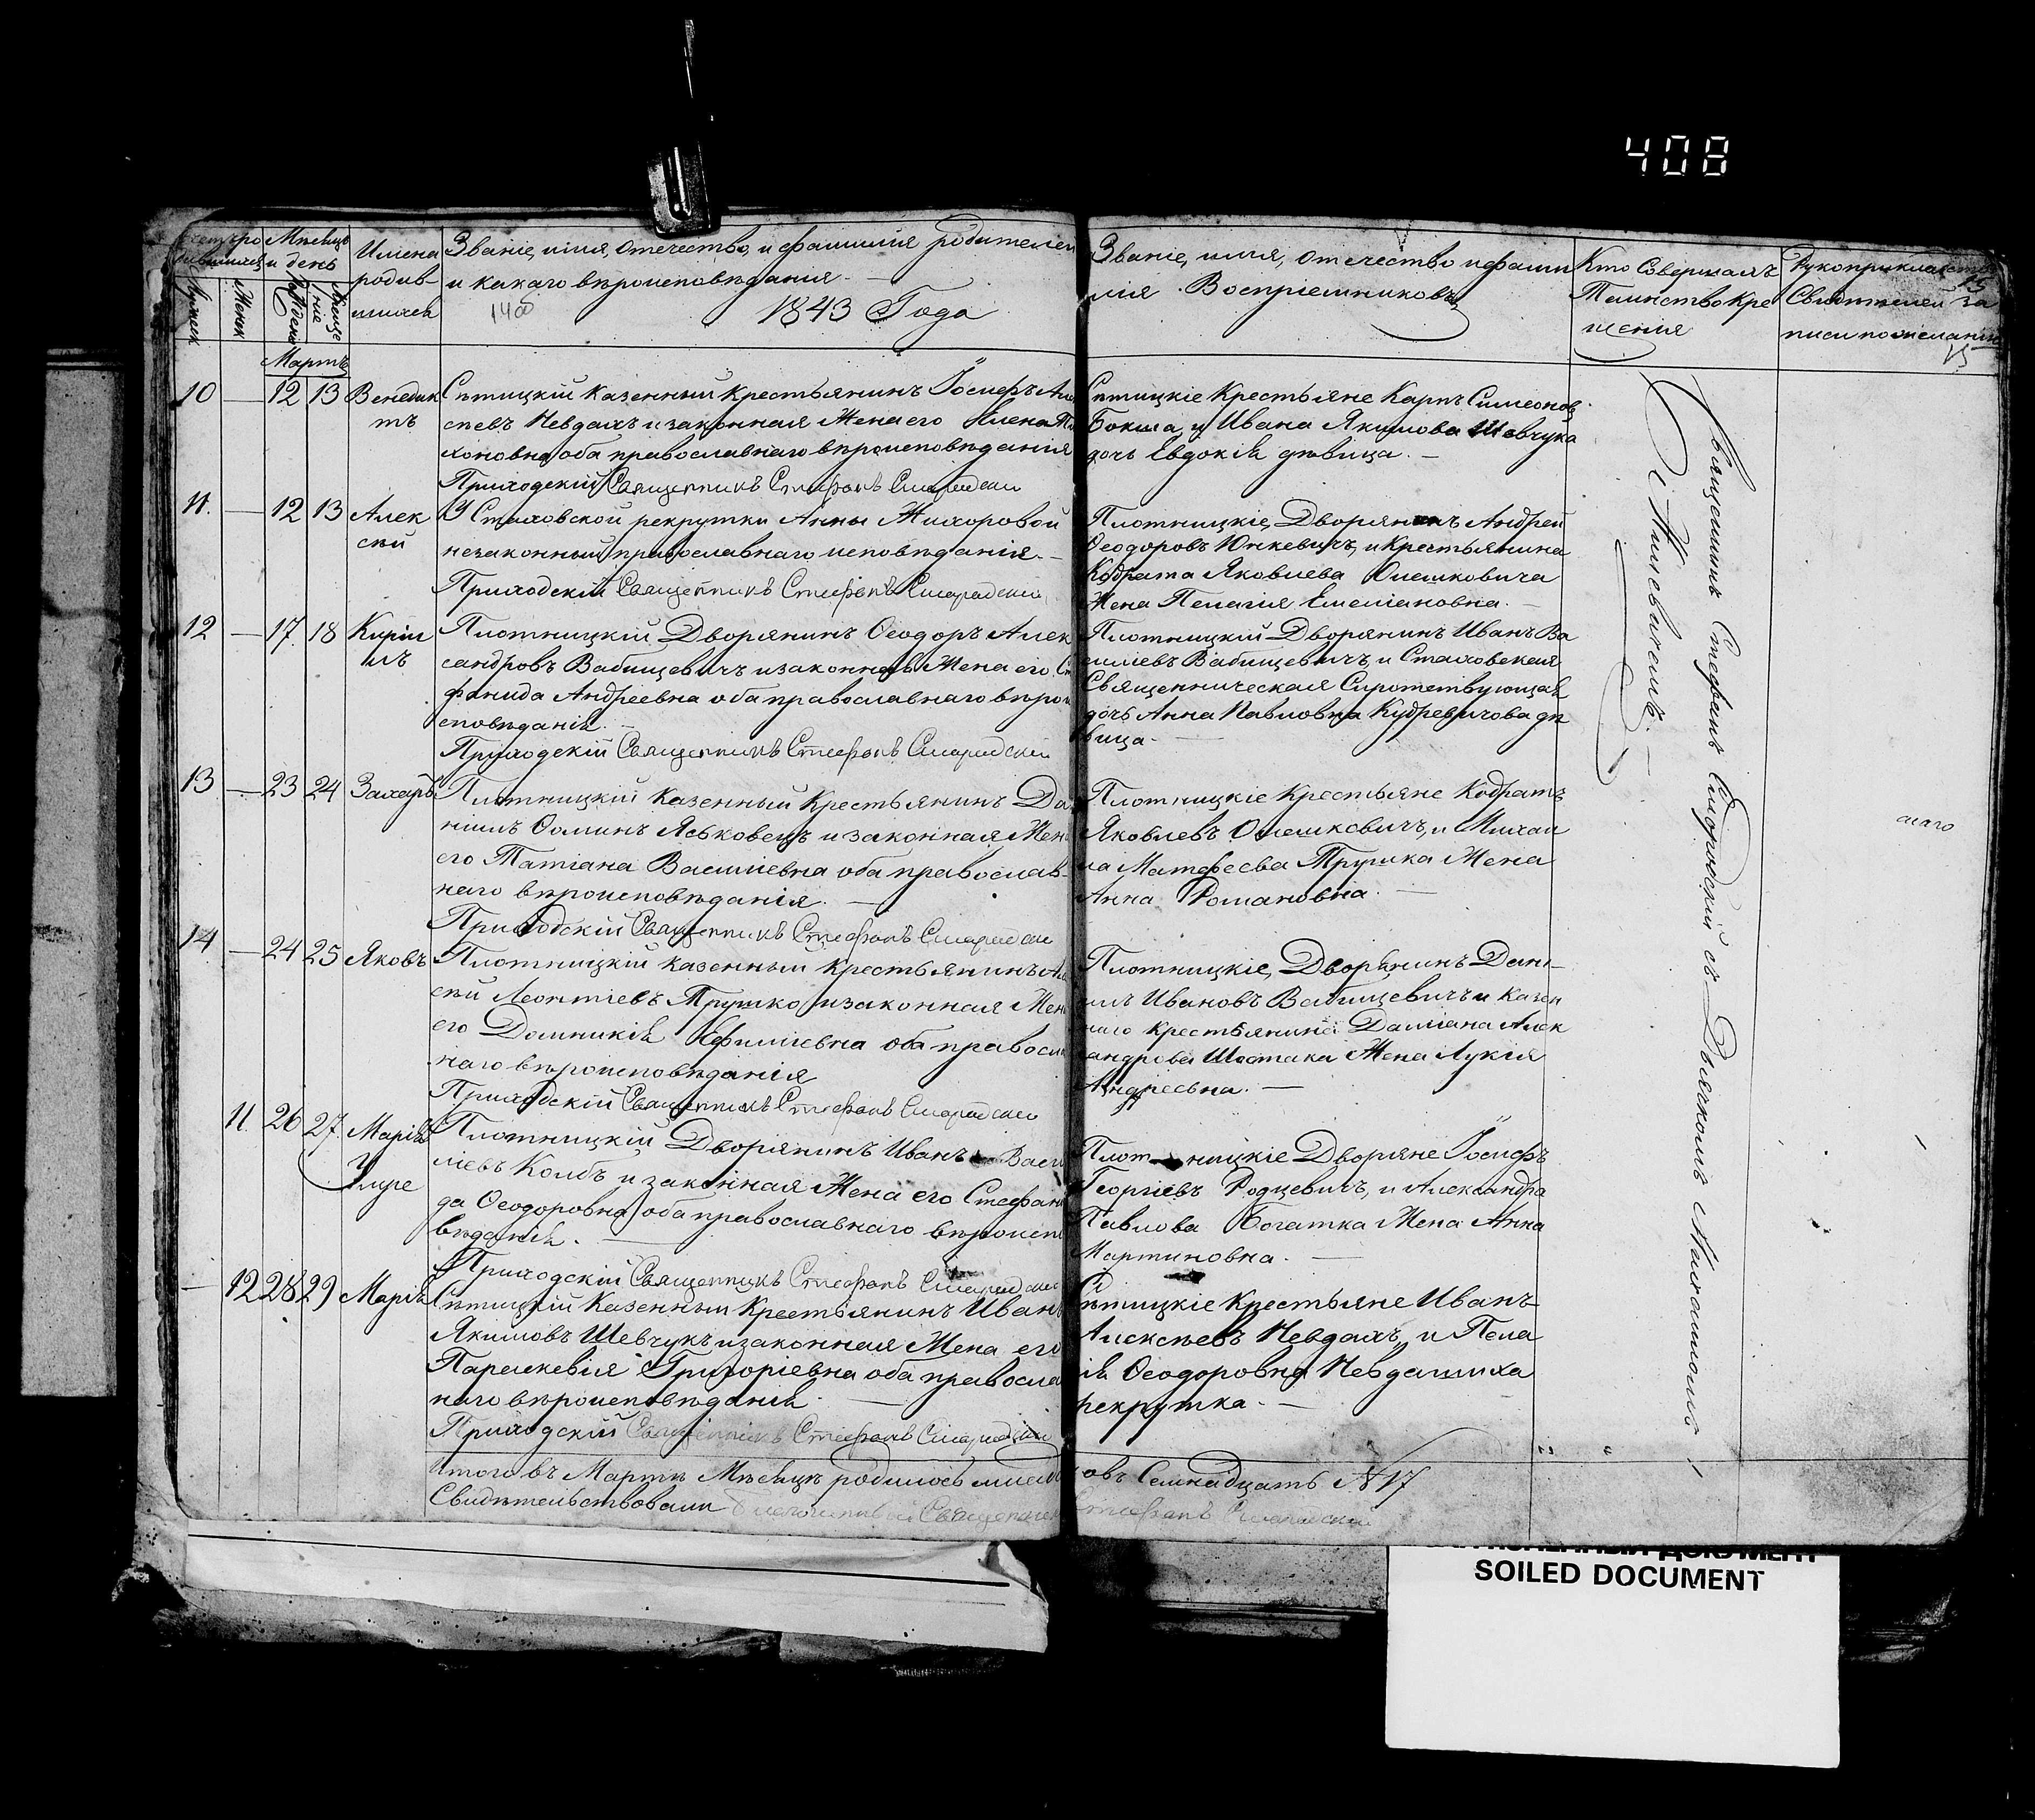 408
Мѣсяцъ
и день
Имена
родив-
шихся
Званіе, имя, отечество, и фамилія родителей
и какаго вѣроисповѣданія.
1843 Года
Званіе, имя, отечество и фами
лія Воспріемниковъ
Кто Совершалъ
Таинство Кре
щенія
Рукоприкладство
Свидѣтелей за
писи по желанію
15
Мартъ
10 — 12 13 Венедик
тъ
Сѣтицкій Казенный Крестьянинъ Іосифъ
Невдахъ и законная Жена его
оба православнаго вѣроисповѣданія
Приходскій Священникъ Стефанъ
Сѣтицкіе Крестьяне Карпъ Симеонов
Бокша, и Ивана Якимова Шевчука
дочь Евдокія дѣвица. —
11. — 12 13 Алек
сѣй
У Стаховской рекрутки Анны
незаконный православнаго исповѣданія. —
Приходскій Священникъ Стефанъ
Плотницкіе, Дворянинъ Андрей
Ѳеодоровъ Юнкевичъ, и Крестьянина
Кодрата Яковлева Олешковича
Жена Пелагія Емеліановна. —
12 — 17 18 Кирил
лъ
Плотницкій Дворянинъ Ѳеодоръ Алек
сандровъ Вабищевичъ и законная Жена его Ст
фанида Андреевна оба православнаго вѣрои
сповѣданія. —
Приходскій Священникъ Стефанъ
Плотницкій Дворянинъ Иванъ Ва
силіевъ Вабищевичъ, и Стаховская
Священническая Сиротствующая
дочь Анна Павловна Кудревичова дѣ
вица. —
13 — 23 24 Захарій
Плотницкій Казенный Крестьянинъ Да
ніилъ Ѳоминъ Яськовецъ и законная Жен
его Татіана Василіевна оба православ-
наго вѣроисповѣданія. —
Приходскій Священникъ Стефанъ
Плотницкіе Крестьяне Кодратъ
Яковлевъ Олешковичъ, и Михаи
ла Матфеева Трушка Жена
Анна Романовна. —
14 — 24 25 Яковъ
Плотницкій казенный крестьянинъ Але
сѣй Леонтіевъ Трушко и законная Жен
его Домникія Ефиміевна оба правосл
наго вѣроисповѣданія
Приходскій Священникъ Стефанъ
Плотницкіе, Дворянинъ Дані-
илъ Ивановъ Вабищевичъ и казен
наго крестьянина Даміана Алек
андрова Шостака Жена Лукія
Андреевна. —
11. 26 27. Марія
Плотницкій Дворянинъ Иванъ Васи
ліевъ Колбъ и законная Жена его Стефани
да Ѳеодоровна оба православнаго вѣроисп
вѣданія. —
Приходскій Священникъ Стефанъ
Плотницкіе Дворяне Іосифъ
Георгіевъ Родцевичъ, и Александра
Павлова Богатка Жена Анна
Мартиновна. —
— 12 28 29 Марія
Сѣтицкій Казенный Крестьянинъ Иванъ
Якимовъ Шевчукъ и законная Жена его
Параскевія Григоріевна оба правосла
наго вѣроисповѣданія —
Приходскій Священникъ Стефанъ
Сѣтицкіе Крестьяне Иванъ
Алексѣевъ Невдахъ, и Пела
ія Ѳеодоровна Невдашиха
рекрутка. —
Священникъ Стефанъ съ Дьячкомъ
Итого въ Мартѣ Мѣсяцѣ родилось
овъ Семнадцать №17
Свидѣтельствовали
Священник Стефанъ
SOILED DOCUMENT